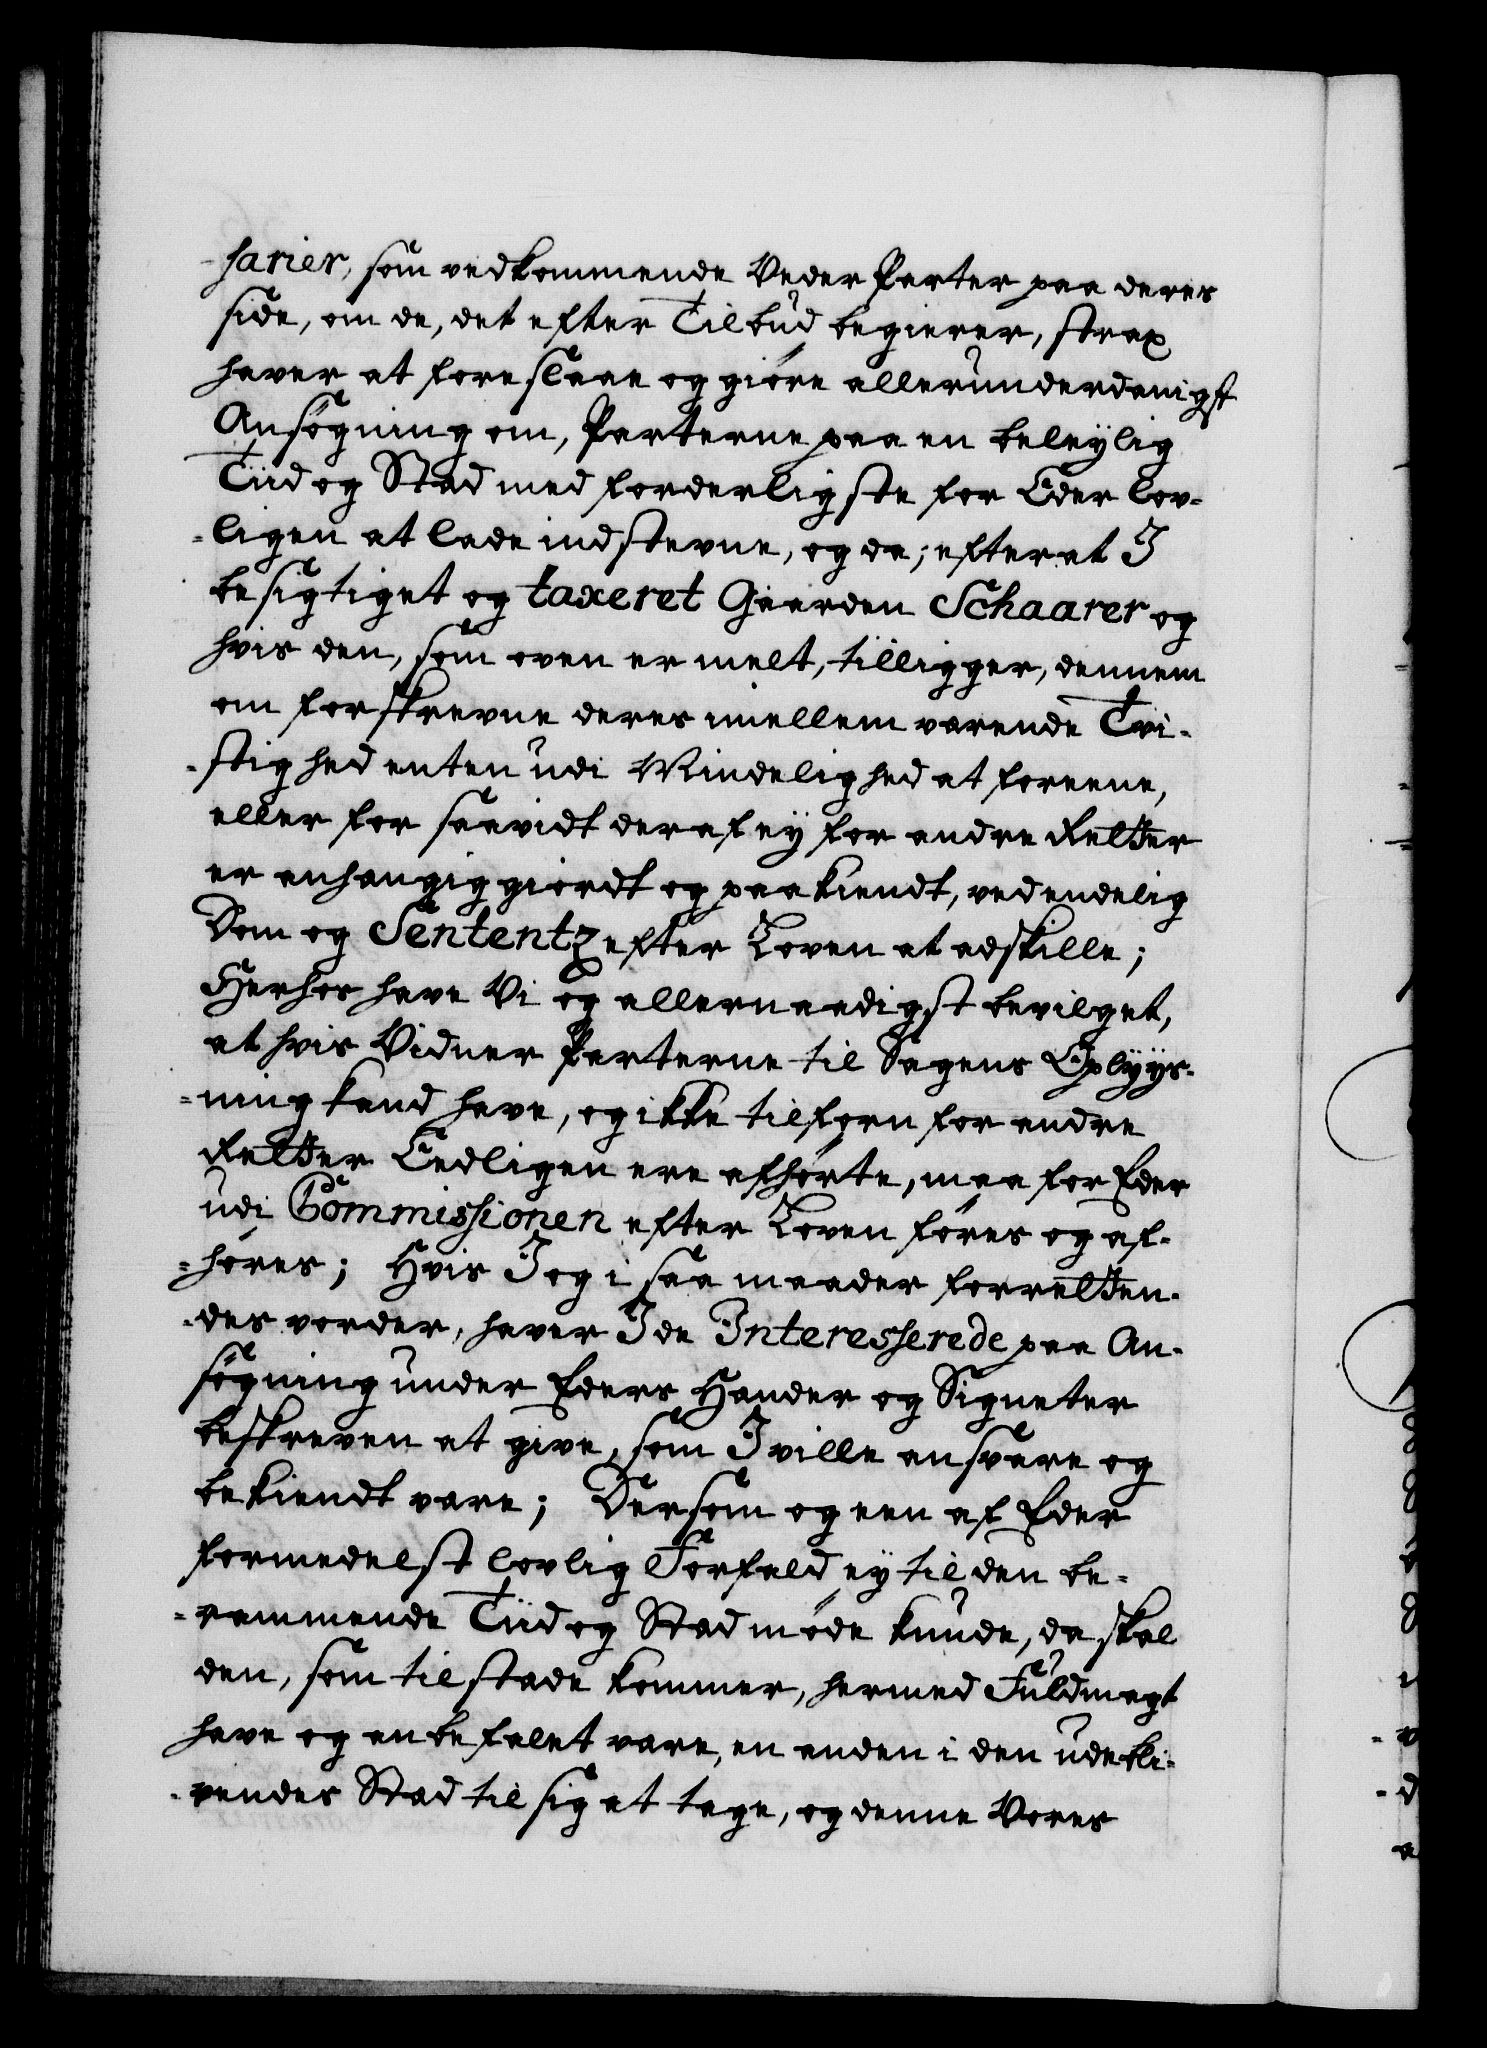 sarier, som vedkommende Veder Parter paa deres
side, om de, det efter Tilbud begierer, strax
haver at foreslaae og giöre allerunderdanigst
Ansögning om, Parterne paa en beleylig
Tiid og Stad med forderligste for Eder lov-
-ligen at lade indstevne, og da; efter at I
besigtiget og taxeret Gaarden Schaarer og
hvis den, som oven er melt, tilligger, dennem
om forskrevne deres imellem varende Tvi-
-stighed enten udi Mindelighed at foreene,
eller for saavidt deraf ey for andre Retter
er anhængig giordt og paakiendt, ved endelig
Dom og Sententz efter Loven at adskille;
Herhos have Vi og allernaadigst bevilget,
at hvis Vidner Parterne til Sagens Oplyys-
-ning kand have, og ikke tilforn for andre
Retter Eedligen ere afhörte, maa for Eder
udi Commissionen efter Loven föres og af-
-höres; Hvis I og i saa maader forretten-
-des vorder, haver I de Interesserede paa An-
sögning under Eders Hænder og Signeter
beskreven at give, som I ville ansvare og
bekiendt være; Dersom og een af Eder
formedelst lovlig Forfald ey til den be-
-rammende Tiid og Stad möde kunde, da skal
den, som tilstæde kommer, hermed Fuldmagt
have og anbefalet være, en anden i den udebli-
-vendes Stad til sig at tage, og denne Vores